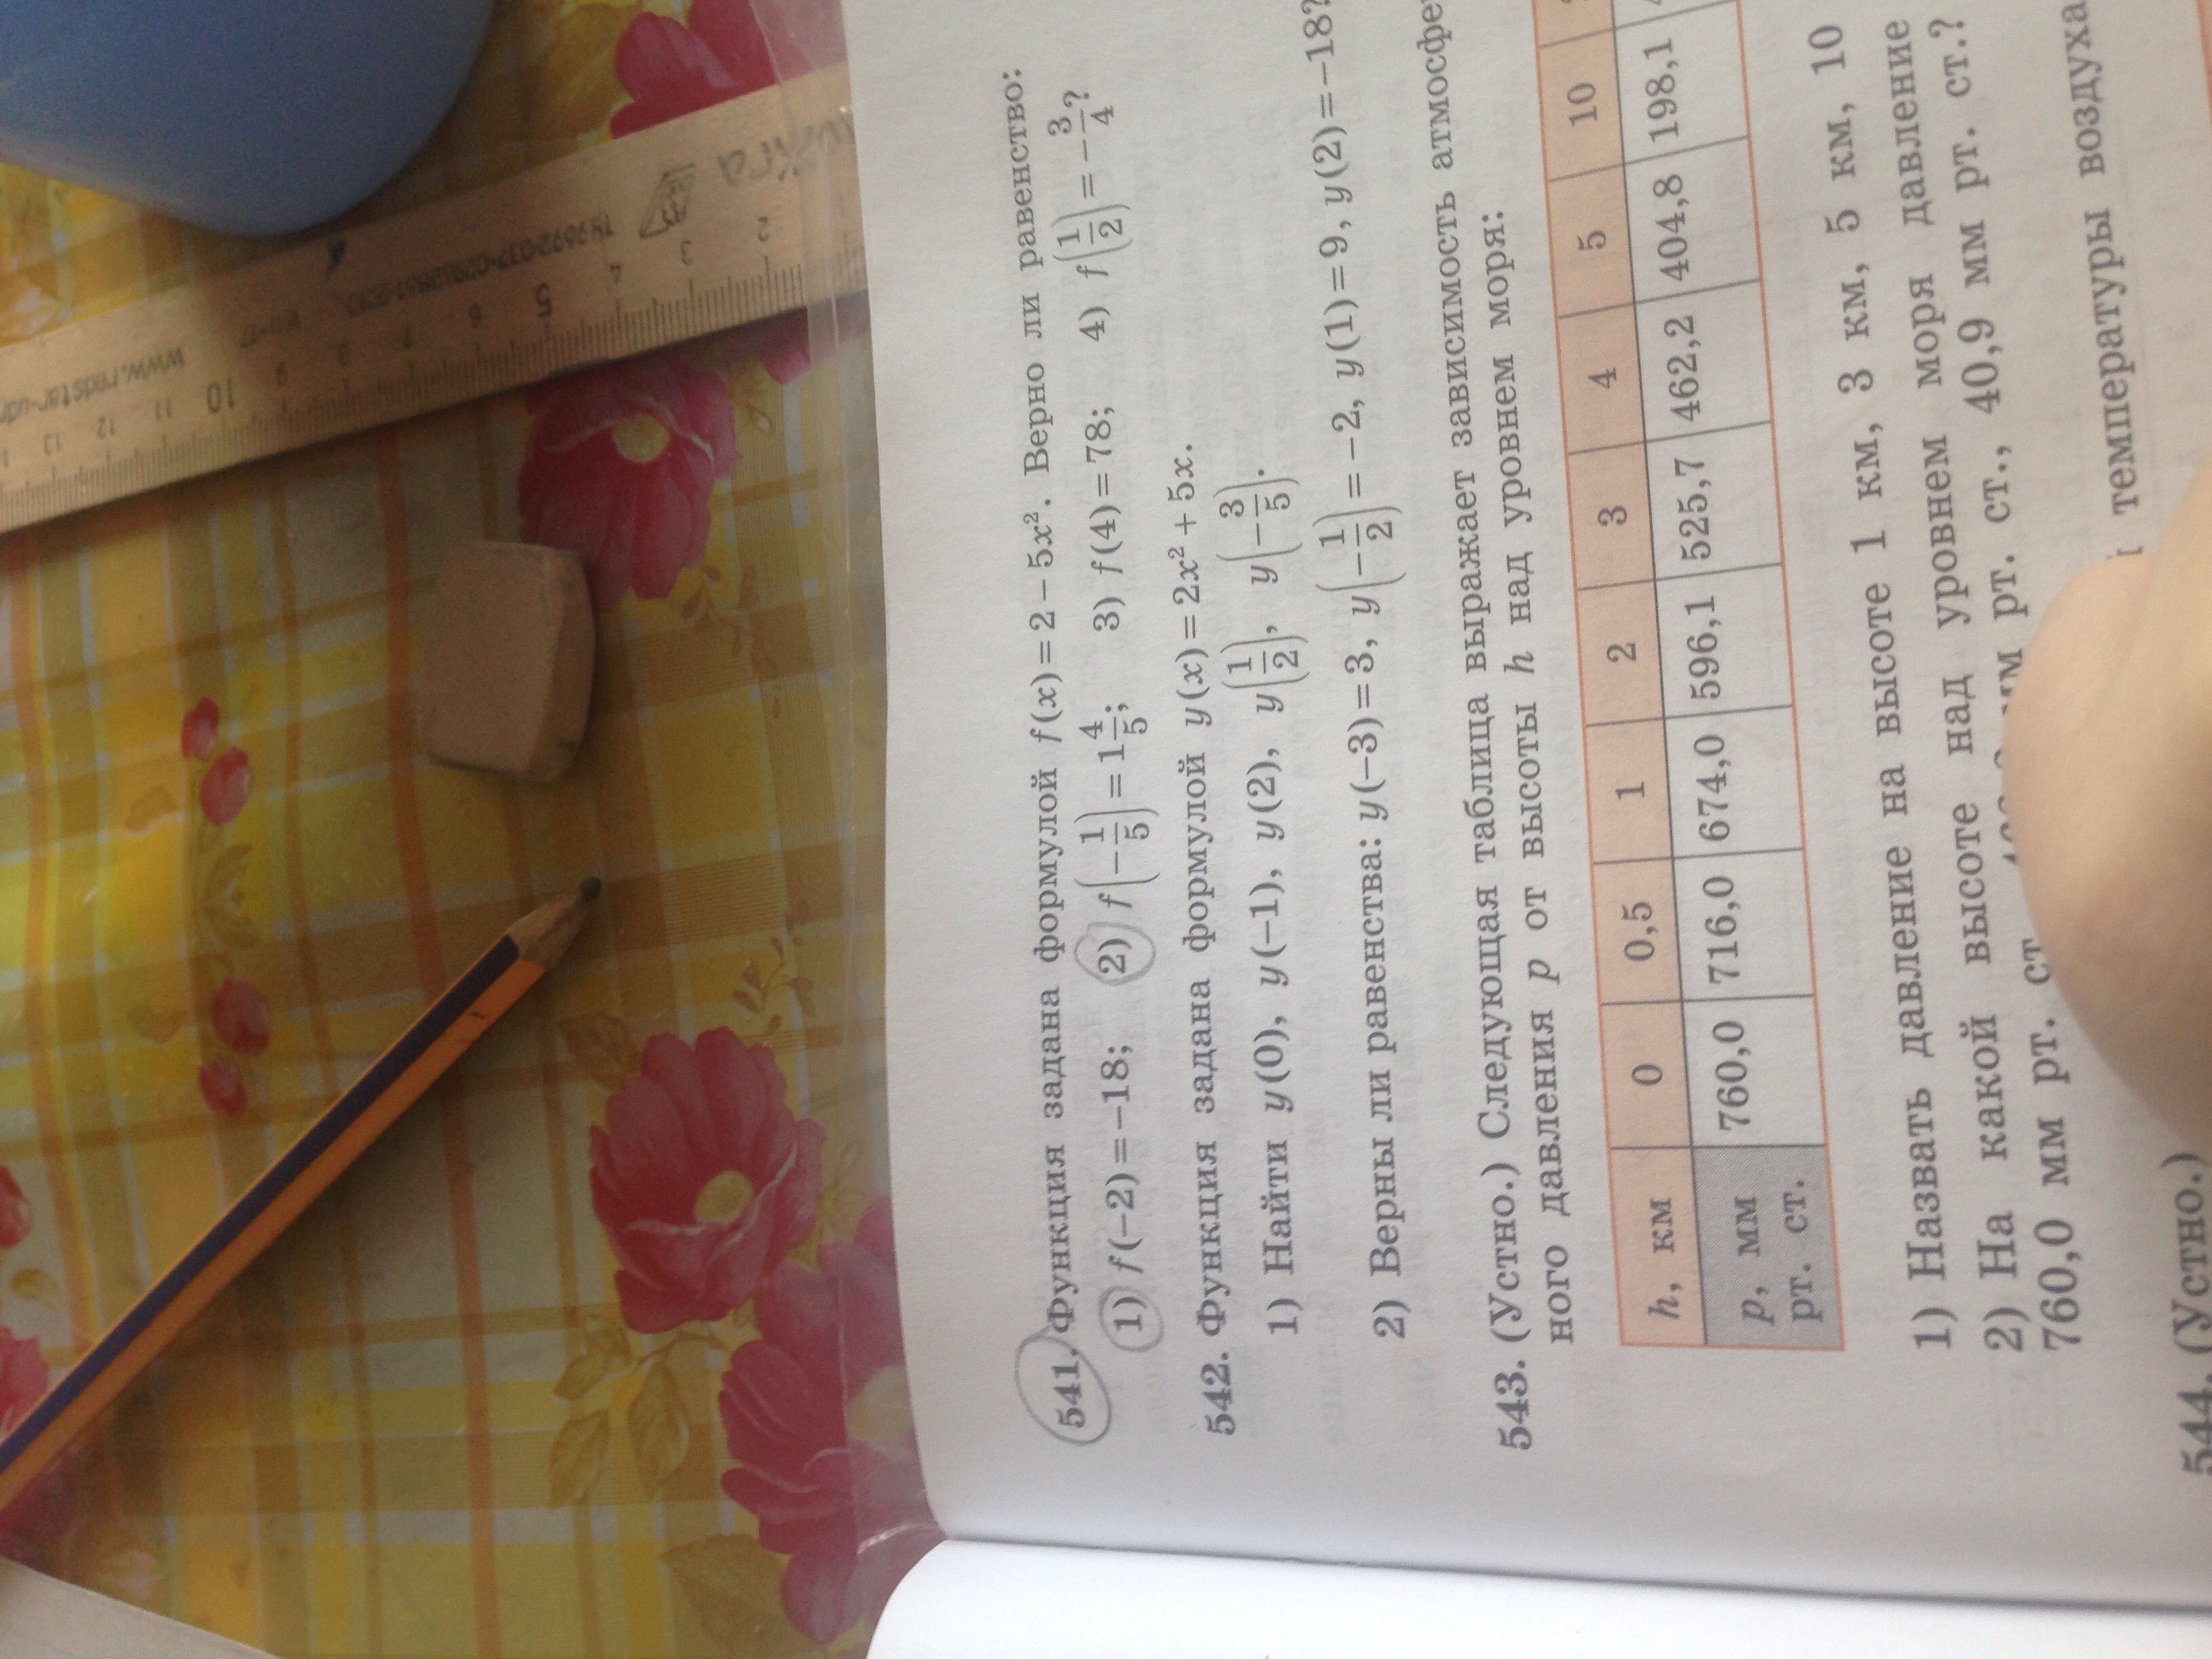 541. Функция задана формулой f(x)=2-5x². Верно ли равенство:
1) f(-2)=-18; 2) f(-1/5)=1 4/5; 3) f(4)=78; 4) f(1/2)=-3/4?
542. Функция задана формулой y(x)=2x²+5x.
1) Найти y(0), y(-1), y(2), y(1/2), y(-3/5).
2) Верны ли равенства: y(-3)=3, y(-1/2)=-2, y(1)=9, y(2)=-18?
543. (Устно.) Следующая таблица выражает зависимость атмосфе
ного давления p от высоты h над уровнем моря:
h, км 0 0,5 1 2 3 4 5 10
p, мм рт. ст. 760,0 716,0 674,0 596,1 525,7 462,2 404,8 198,1
1) Назвать давление на высоте 1 км, 3 км, 5 км, 10
2) На какой высоте над уровнем моря давление
760,0 мм рт. ст рт. ст., 40,9 мм рт. ст.?
544. (Устно.)
температуры воздуха
www.redstar-
13 12 11 10 9 8 7 6 5 4 3 2